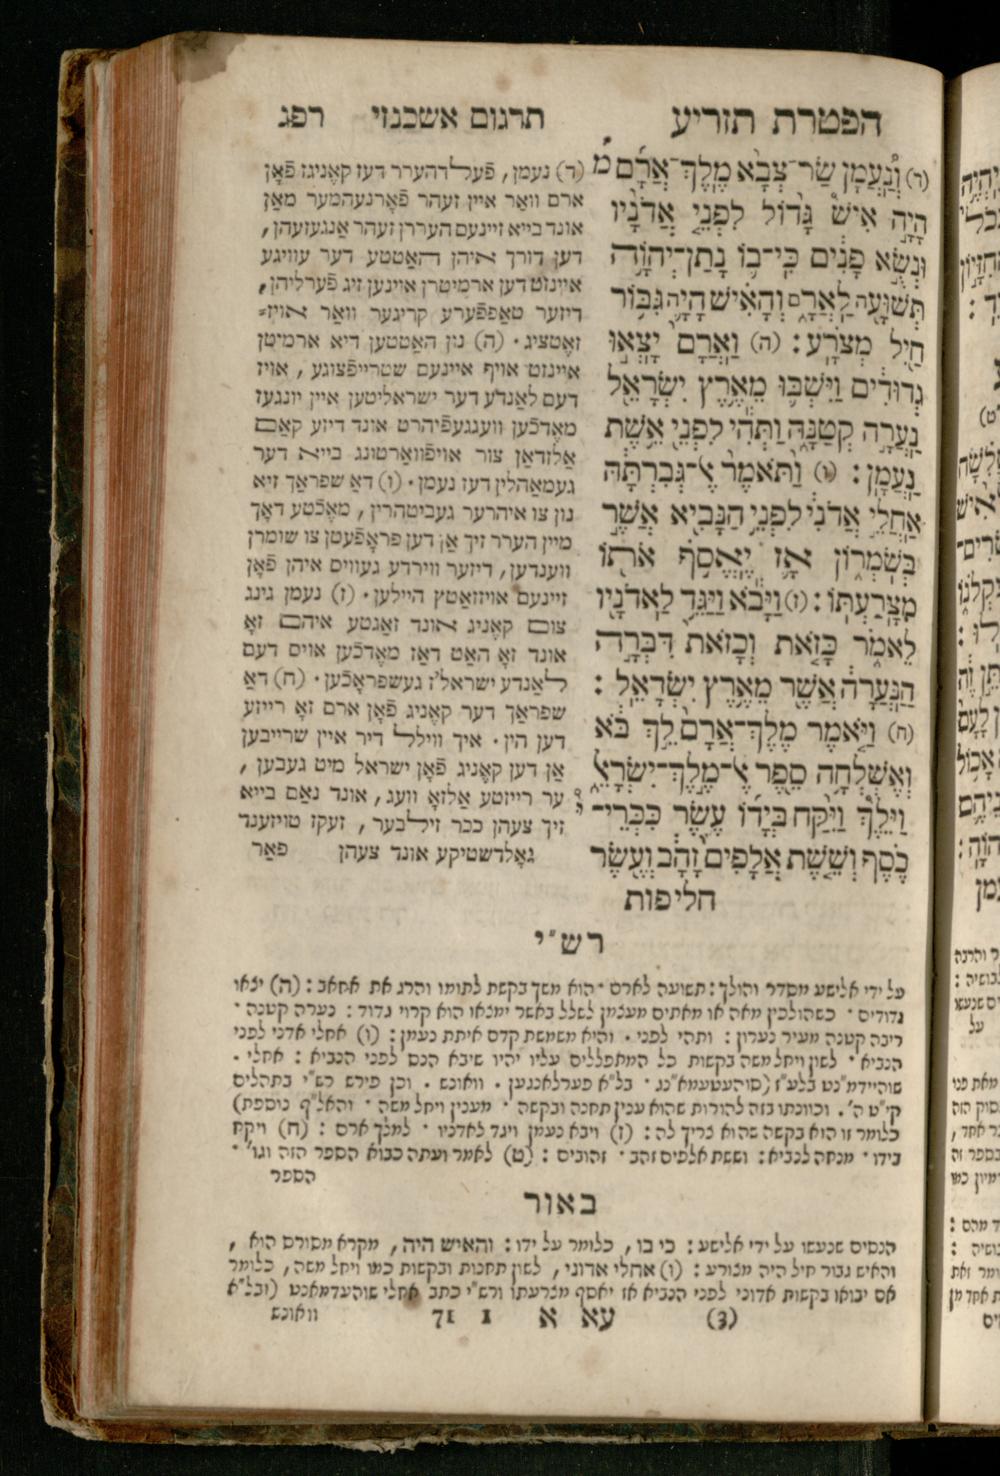 הפטרת תזריע
תרגום אשכנזי
רפג
(ד) וְנַעֲמָן שַׂר־צְבָא מֶלֶךְ־אֲרָם
הָיָה אִישׁ גָּדוֹל לִפְנֵי אֲדֹנָיו
וּנְשֻׂא פָנִים כִּי־בוֹ נָתַן־יְהוָֹה
תְּשׁוּעָה לַאֲרָם וְהָאִישׁ הָיָה גִּבּוֹר
חַיִל מְצֹרָע : (ה) וַאֲרָם יָצְאוּ
גְדוּדִים וַיִּשְׁבּוּ מֵאֶרֶץ יִשְׂרָאֵל
נַעֲרָה קְטַנָּה וַתְּהִי לִפְנֵי אֵשֶׁת
נַעֲמָן : (ו) וַתֹּאמֶר אֶל־גְּבִרְתָּהּ
אַחֲלֵי אֲדֹנִי לִפְנֵי הַנָּבִיא אֲשֶׁר
בְּשֹׁמְרוֹן אָז יֶאֱסֹף אֹתוֹ
מִצָּרַעְתּוֹ : (ז) וַיָּבֹא וַיַּגֵּד לַאדֹנָיו
לֵאמֹר כָּזֹאת וְכָזֹאת דִּבְּרָה
הַנַּעֲרָה אֲשֶׁר מֵאֶרֶץ יִשְׂרָאֵל :
(ח) וַיֹּאמֶר מֶלֶךְ־אֲרָם לֶךְ בֹּא
וְאֶשְׁלְחָה סֵפֶר אֶל־מֶלֶךְ־יִשְׂרָאֵל
וַיֵּלֶךְ וַיִּקַּח בְּיָדוֹ עֶשֶׂר כִּכְּרֵי־
כֶסֶף וְשֵׁשֶׁת אֲלָפִים זָהָב וְעֶשֶׂר
חליפות
(ד) נעמן, פֿעלדהערר דעז קאָניגז פֿאָן
ארם וואר איין זעהר פֿאָרנעהמער מאַן
אונד בייא זיינעם העררן זעהר אַנגעזעהן,
דען דורך איהן האַטטע דער עוויגע
איינזט דען ארמיטרן איינען זיג פֿערליהן,
דיזער טאַפּפֿערע קריגער וואר אויז=
זאֶטציג. (ה) נון האַטטען דיא ארמיטן
איינזט אויף איינעם שטרייפֿצוגע, אויז
דעם לאַנדע דער ישראליטען איין יונגעז
מאֶדכֿען וועגגעפֿיהרט אונד דיזע קאַם
אַלזדאַן צור אויפֿוואַרטונג בייא דער
געמאַהלין דעז נעמן. (ו) דאַ שפראַך זיא
נון צו איהרער געביטהרין, מאֶכֿטע דאָך
מיין הערר זיך אַן דען פראָפֿעטן צו שומרן
ווענדען, דיזער ווירדע געוויס איהן פֿאָן
זיינעם אויזזאַטץ היילען. (ז) נעמן גינג
צום קאֶניג אונד זאַגטע איהם זאָ
אונד זאָ האַט דאַז מאֶדכֿען אויס דעם
לאַנדע ישראל'ז געשפראָכֿען. (ח) דאַ
שפראַך דער קאֶניג פֿאָן ארם זאָ רייזע
דען הין. איך ווילל דיר איין שרייבען
אַן דען קאֶניג פֿאָן ישראל מיט געבען,
ער רייזטע אַלזאָ וועג, אונד נאַם בייא
זיך צעהן ככר זילבער, זעקז טויזענד
גאָלדשטיקע אונד צעהן פּאַר
רש"י
על ידי אלישע מסדר והולך : תשועה לארם. הוא משך בקשת לתומו והרג את אחאב : (ה) יצאו
גדודים. כשהולכין מאה או מאתים מעצמן לשלל באשר ימצאו הוא קרוי גדוד : נערה קטנה.
ריבה קטנה מעיר נערון : ותהי לפני. והיא משמשת קדם איתת נעמן : (ו) אחלי אדני לפני
הנביא. לשון ויחל משה בקשות כל המתפללים עליו יהיו שיבא הנס לפני הנביא : אחלי.
בל"א פערלאנגען. וואונש. וכן פירש רש"י בתהלים
קי"ט ה'. וכוונתו בזה להורות שהוא ענין תחנה ובקשה. מענין ויחל משה. והאל"ף נוספת)
כלומר זו הוא בקשה שהוא צריך לה : (ז) ויבא נעמן ויגד לאדניו. למלך ארם : (ח) ויקח
בידו. מנחה לנביא : וששת אלפים זהב. זהובים : (ט) לאמר ועתה כבוא הספר הזה וגו'.
הספר
באור
הנסים שנעשו על ידי אלישע : כי בו, כלומר על ידו : והאיש היה, מקרא מסורס הוא,
והאיש גבור חיל היה מצורע : (ו) אחלי אדוני, לשון תחנות ובקשות כמו ויחל משה, כלומר
אם יבואו בקשות אדוני לפני הנביא אז יאסף מצרעתו ורש"י כתב אחלי שוהעדמאנט (ובל"א
וואונש
(3) עא א 1 71